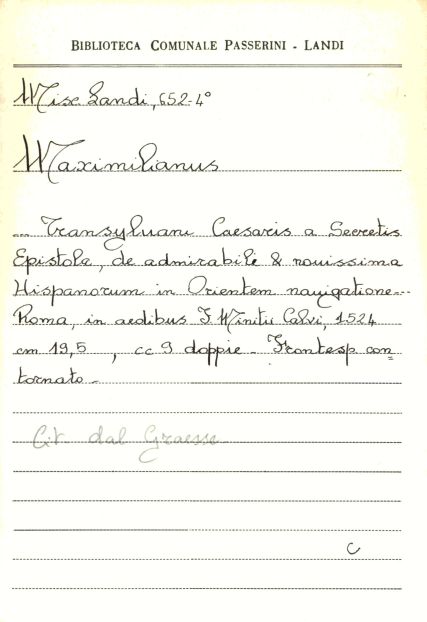 BIBLIOTECA COMUNALE PASSERINI - LANDI
Misc Landi, 652-4°
Maximilianus
... Transyluani Caesaris a Secretis
Epistola, de admirabile & nouissima
Hispanorum in Orientem nauigatione...
Roma, in aedibus F. Minitii Calvi, 1524
cm 19,5 , cc 9 doppie - Frontesp con=
tornato -
Cit. dal Graesse
C